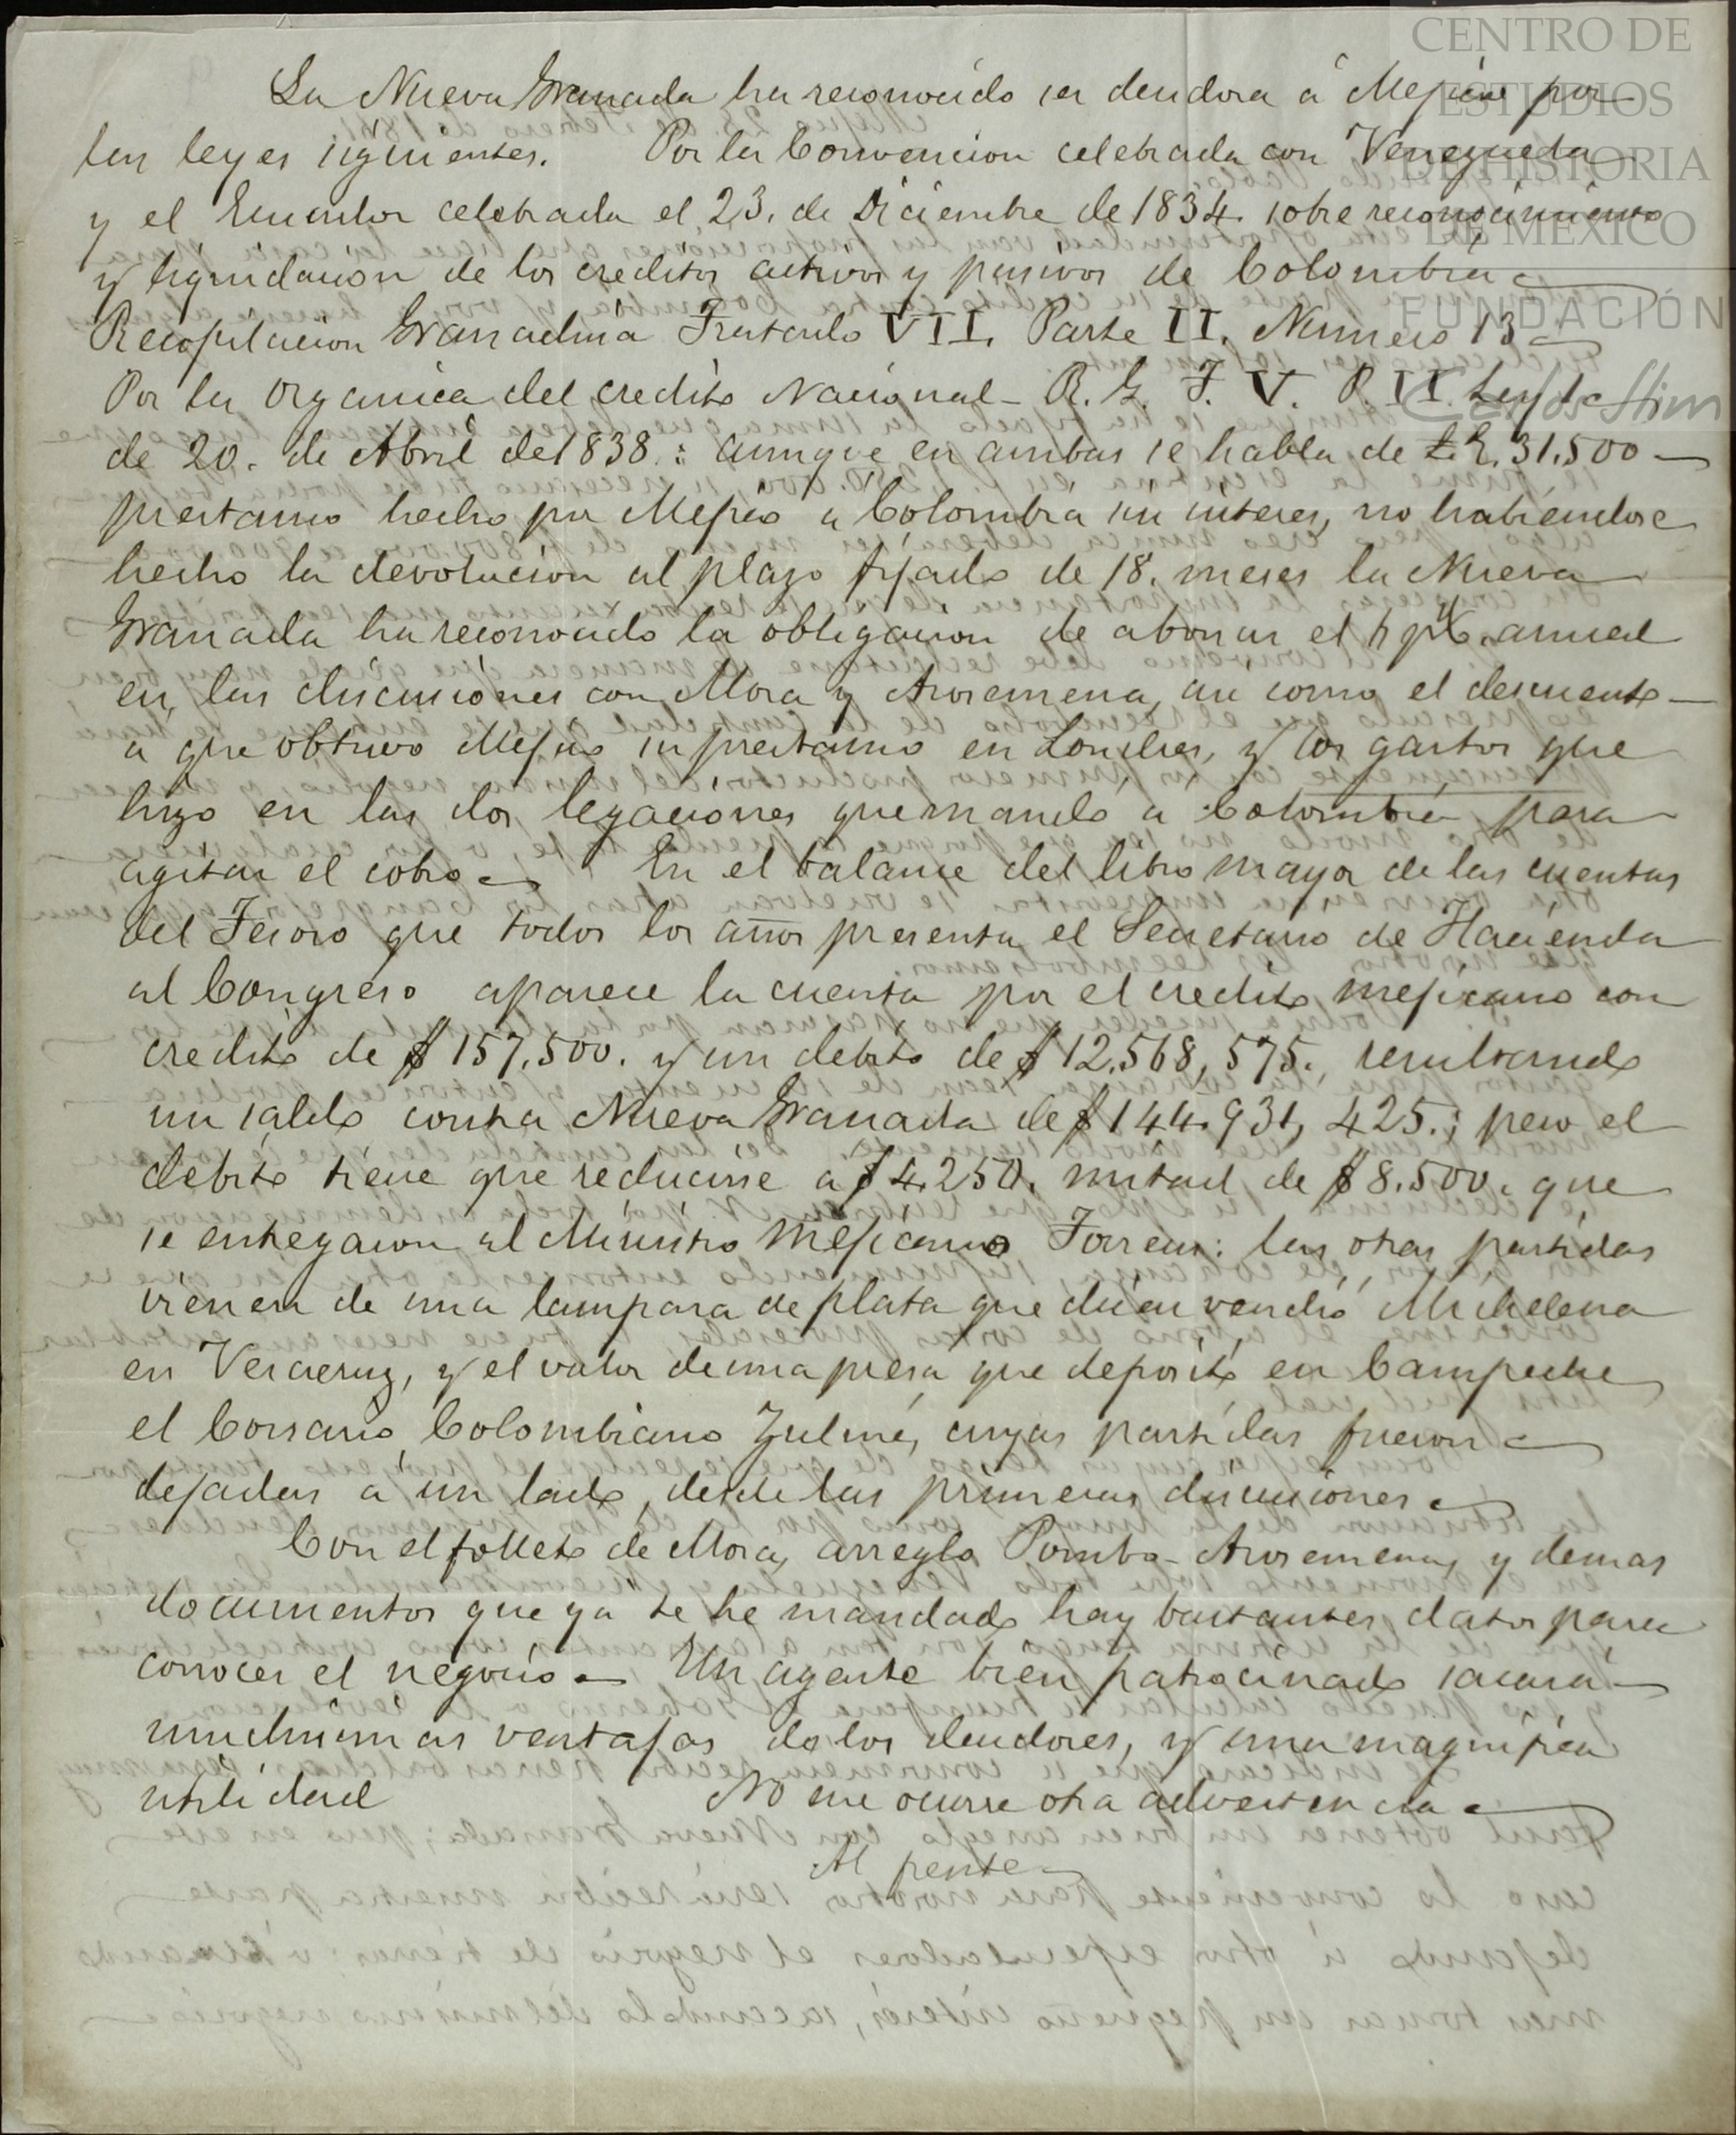 La Nueva Granada ha reconocido ser deudora á Mejico por
las leyes siguientes. Por la Convencion celebrada con Venezuela
y el Ecuador celebrada el 23. de Diciembre de 1834. sobre reconocimiento
y liquidacion de los creditos activos y pasivos de Colombia
Recopilacion Granadina Tratado VII. Parte II. Numero 13
Por la organica del credito Nacional - R. G. T. V. P. VI. Ley 1ª
de 20. de Abril de 1838.: aunque en ambas se habla de £ 31.500
prestamo hecho por Mejico a Colombia sin interes, no habiendose
hecho la devolucion al plazo fijado de 18. meses la Nueva
Granada ha reconocido la obligacion de abonar el 6 p% anual
en las discusiones con Mora y Arosemena, asi como el descuento
a que obtuvo Mejico su prestamo en Londres, y los gastos que
hizo en las dos legaciones que mandó a Colombia para
agitar el cobro. En el balance del libro mayor de las cuentas
del Tesoro que todos los años presenta el Secretario de Hacienda
al Congreso aparece la cuenta por el credito mejicano con
credito de $ 157.500. y un debito de $ 12.568,575., resultando
un saldo contra Nueva Granada de $ 144.931,425.; pero el
debito tiene que reducirse a $ 4.250. mitad de $ 8.500. que
se entregaron al Ministro Mejicano Torrens: las otras partidas
vienen de una lampara de plata que dicen vendió Michelena
en Veracruz, y el valor de una presa que depositó en Campeche
el Corsario Colombiano Zulmé, cuyas partidas fueron
dejadas á un lado desde las primeras discusiones
Con el folleto de Mora, arreglo Pombo - Arosemena, y demas
documentos que ya te he mandado hay bastantes datos para
conocer el negocio. Un agente bien patrocinado sacará
muchisimas ventajas de los deudores, y una magnifica
utilidad No me ocurre otra advertencia
Al frente
CENTRO DE
ESTUDIOS
DE HISTORIA
DE MEXICO
FUNDACIÓN
Carlos Slim